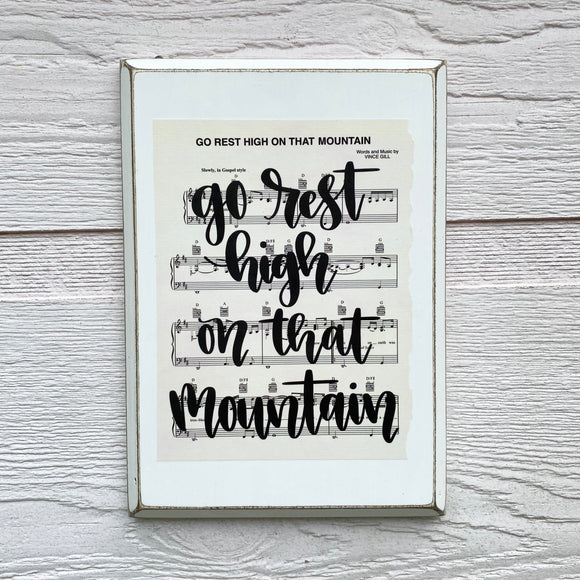 GO REST HIGH ON THAT MOUNTAIN
Words and Music by
VINCE GILL
Slowly, in Gospel style
go rest
high
on that
mountain